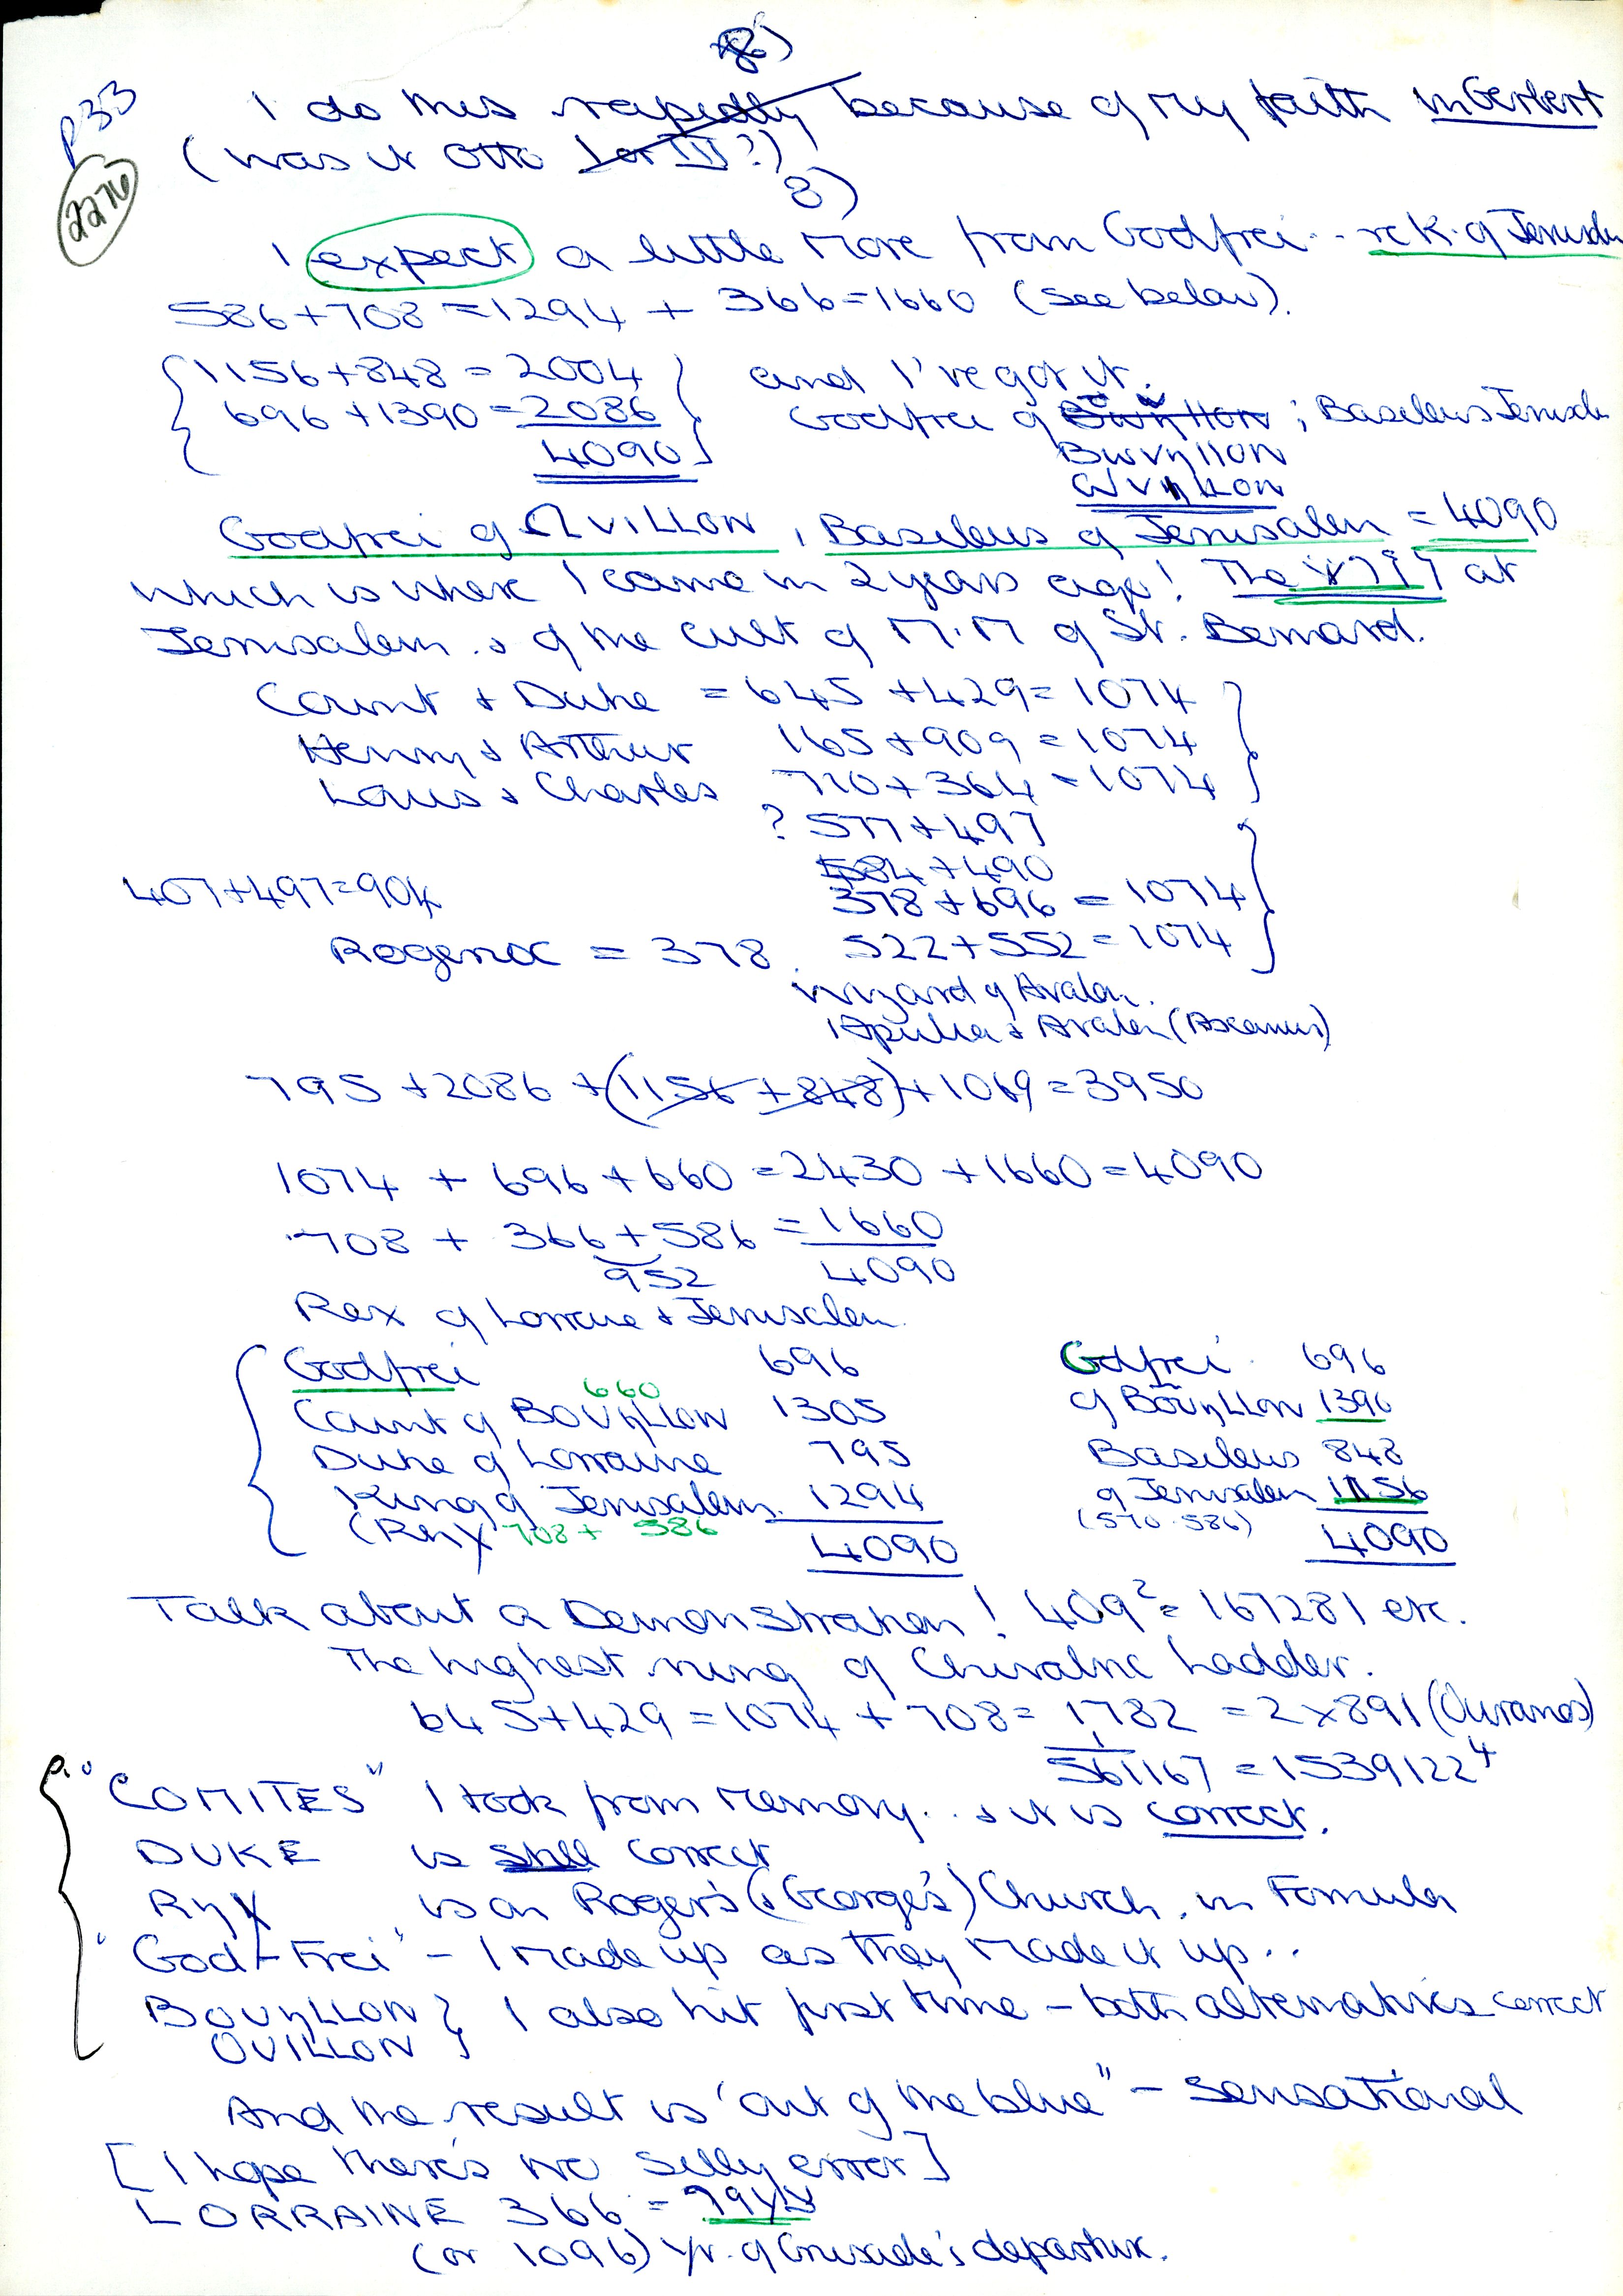 8)
p33
2276
I do this rapidly because of my faith in Gerbert
(was it Otto I or III?)
8)
I expect a little more from Godfrei.. re K. of Jerusalem
586+708 = 1294 + 366 = 1660 (see below).
1156+848 = 2004 and I've got it.
696 + 1390 = 2086 Godfrei of ; Basileus Jerusalem
4090
Godfrei of ΩVILLON, Basileus of Jerusalem = 4090
which is where I came in 2 years ago! The at
Jerusalem & of the cult of M.M of St. Bernard.
Count & Duke = 645 + 429 = 1074
Henry & Arthur 165 + 909 = 1074
Louis & Charles 710 + 364 = 1074
? 577 + 497
584 + 490
407+497=904 378 + 696 = 1074
Rogerox = 378. 522 + 552 = 1074
Wizard of Avalon.
Apulia & Avalon (Ascanius)
795 + 2086 + (1156 + 848) + 1069 = 3950
1074 + 696 + 660 = 2430 + 1660 = 4090
708 + 366 + 586 = 1660
952 4090
Rex of Lorraine & Jerusalem.
Godfrei 696 Godfrei 696
660
Count of BOUηLLON 1305 of BOUηLLON 1390
Duke of Lorraine 795 Basileus 848
King of Jerusalem. 1294 of Jerusalem 1156
708 + 586 (570 · 586)
4090 4090
Talk about a Demonstration! 409² = 167281 etc.
The highest rung of Chivalric Ladder.
645+429 = 1074 + 708 = 1782 = 2 x 891 (Ouranos)
561167 = 1539122⁴
"COMITES" I took from memory.. & it is correct.
DUKE is still correct
Rηχ is on Roger's (& George's) Church, in Formula
"God-Frei" - I made up as they made it up..
BOUηLLON } I also hit first time - both alternatives correct
OUILLON
And the result is "out of the blue" - sensational
[I hope there's no silly error]
LORRAINE 366 =
(or 1096) yr. of Crusade's departure.